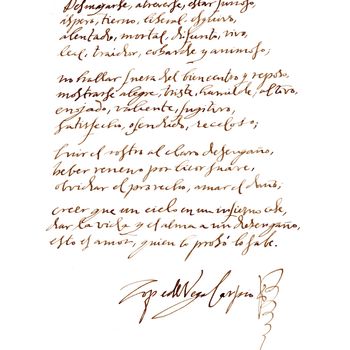 Desmayarse, atreverse, estar furioso,
áspero, tierno, liberal, esquivo,
alentado, mortal, difunto, vivo,
leal, traidor, cobarde y animoso;
no hallar fuera del bien centro y reposo,
mostrarse alegre, triste, humilde, altivo,
enojado, valiente, fugitivo,
satisfecho, ofendido, receloso;
huir el rostro al claro desengaño,
beber veneno por licor suave,
olvidar el provecho, amar el daño;
creer que un cielo en un infierno cabe,
dar la vida y el alma a un desengaño,
esto es amor, quien lo probó lo sabe.
Lope de Vega Carpio